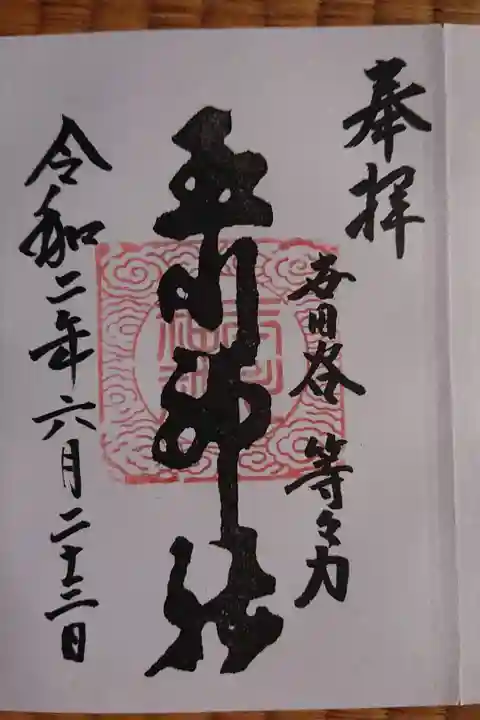 奉拝
世田谷 等々力
玉川神社
令和二年六月二十三日